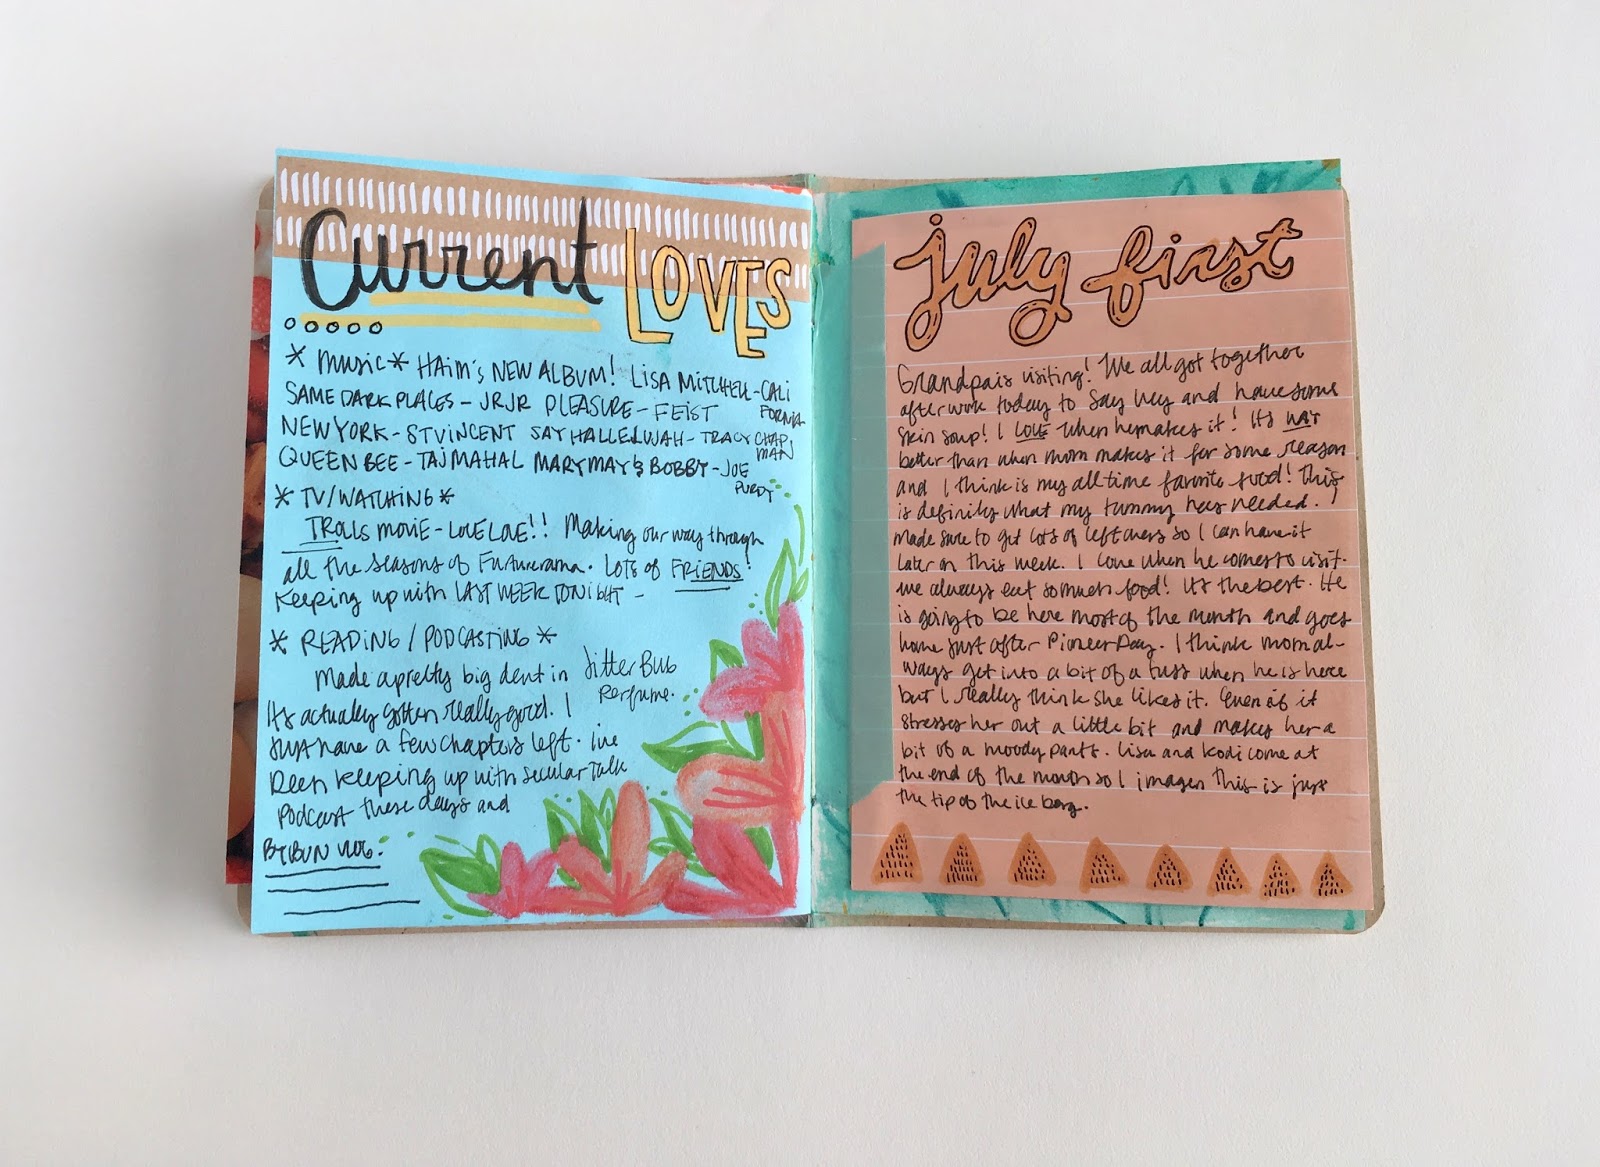 Current LOVES
* music * HAIM'S NEW ALBUM! LISA MITCHELL - CALI
FORNIA
SAME DARK PLACES - JRJR PLEASURE - FEIST
NEW YORK - ST VINCENT SAY HALLELUJAH - TRACY CHAP
MAN
QUEEN BEE - TAJ MAHAL MARY MAY & BOBBY - JOE
PURDY
* TV/WATCHING *
TROLLS MOVIE - LOVE LOVE!! Making our way through
all the seasons of Futurama. LOTS OF FRIENDS!
Keeping up with LAST WEEK TONIGHT -
* READING / PODCASTING *
Made a pretty big dent in Jitter Bug
Perfume.
It's actually gotten really good. I
just have a few chapters left. ive
Been keeping up with Secular Talk
Podcast these days and
july first
Grandpa is visiting! We all got together
after work today to say hey and have some
skin soup! I LOVE when he makes it! Its WAY
better than when mom makes it for some reason
and I think is my all time favorite food! This
is definitly what my tummy has needed. I
made sure to get lots of leftovers so I can have it
later on this week. I love when he comes to visit.
we always eat so much food! It's the best. He
is going to be here most of the month and goes
home just after Pioneer Day. I think mom al-
ways gets into a bit of a fuss when he is here
but I really think she likes it. Even if it
stresses her out a little bit and makes her a
bit of a moody pants. Lisa and Kodi come at
the end of the month so I imagen this is just
the tip of the ice berg.